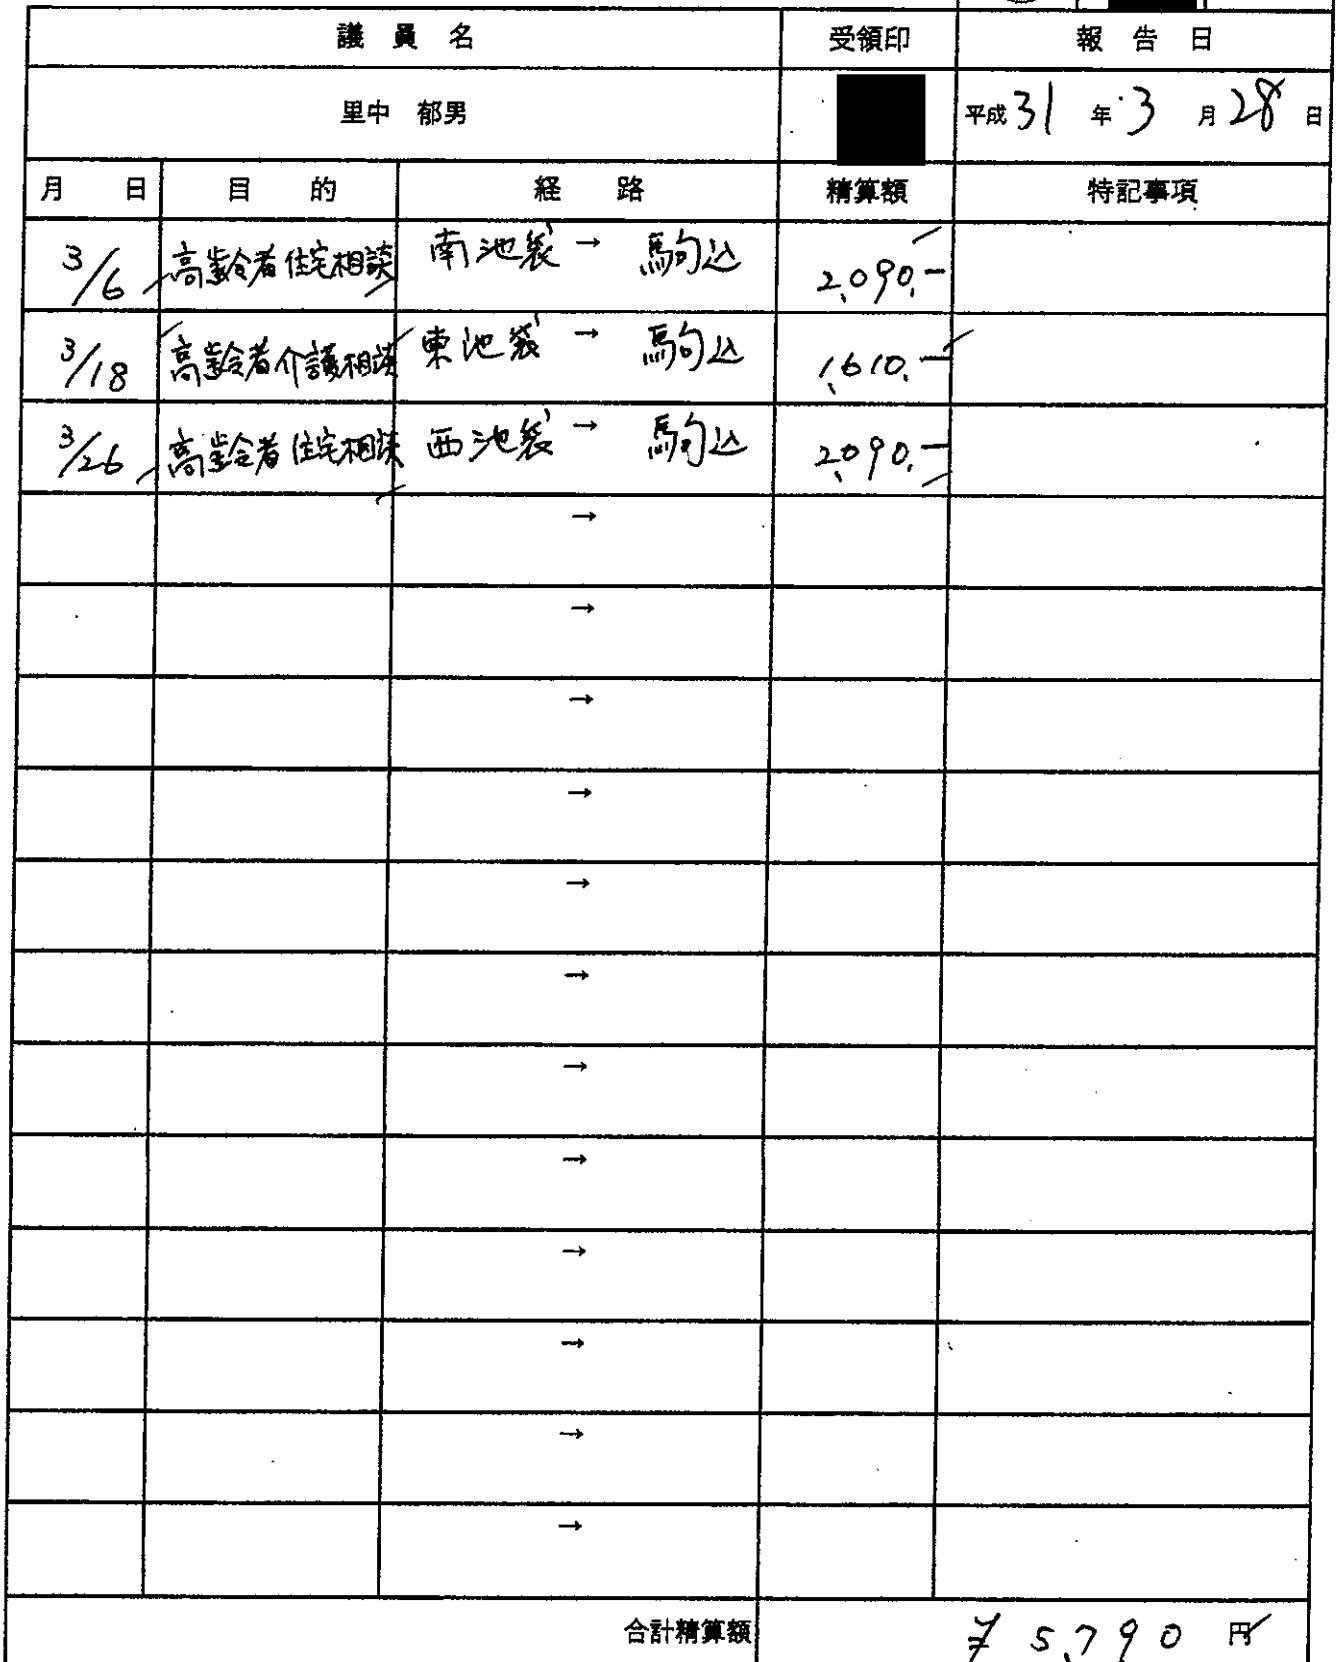 議 員 名 受領印 報 告 日
里中 郁男 平成 31 年 3 月 28 日
月 日 目 的 経 路 精算額 特記事項
3/6 高齢者住宅相談 南池袋 → 駒込 2,090.-
3/18 高齢者介護相談 東池袋 → 駒込 1,610.-
3/26 高齢者住宅相談 西池袋 → 駒込 2,090.-
→
→
→
→
→
→
→
→
→
→
→
→
合計精算額 ¥ 5,790 円